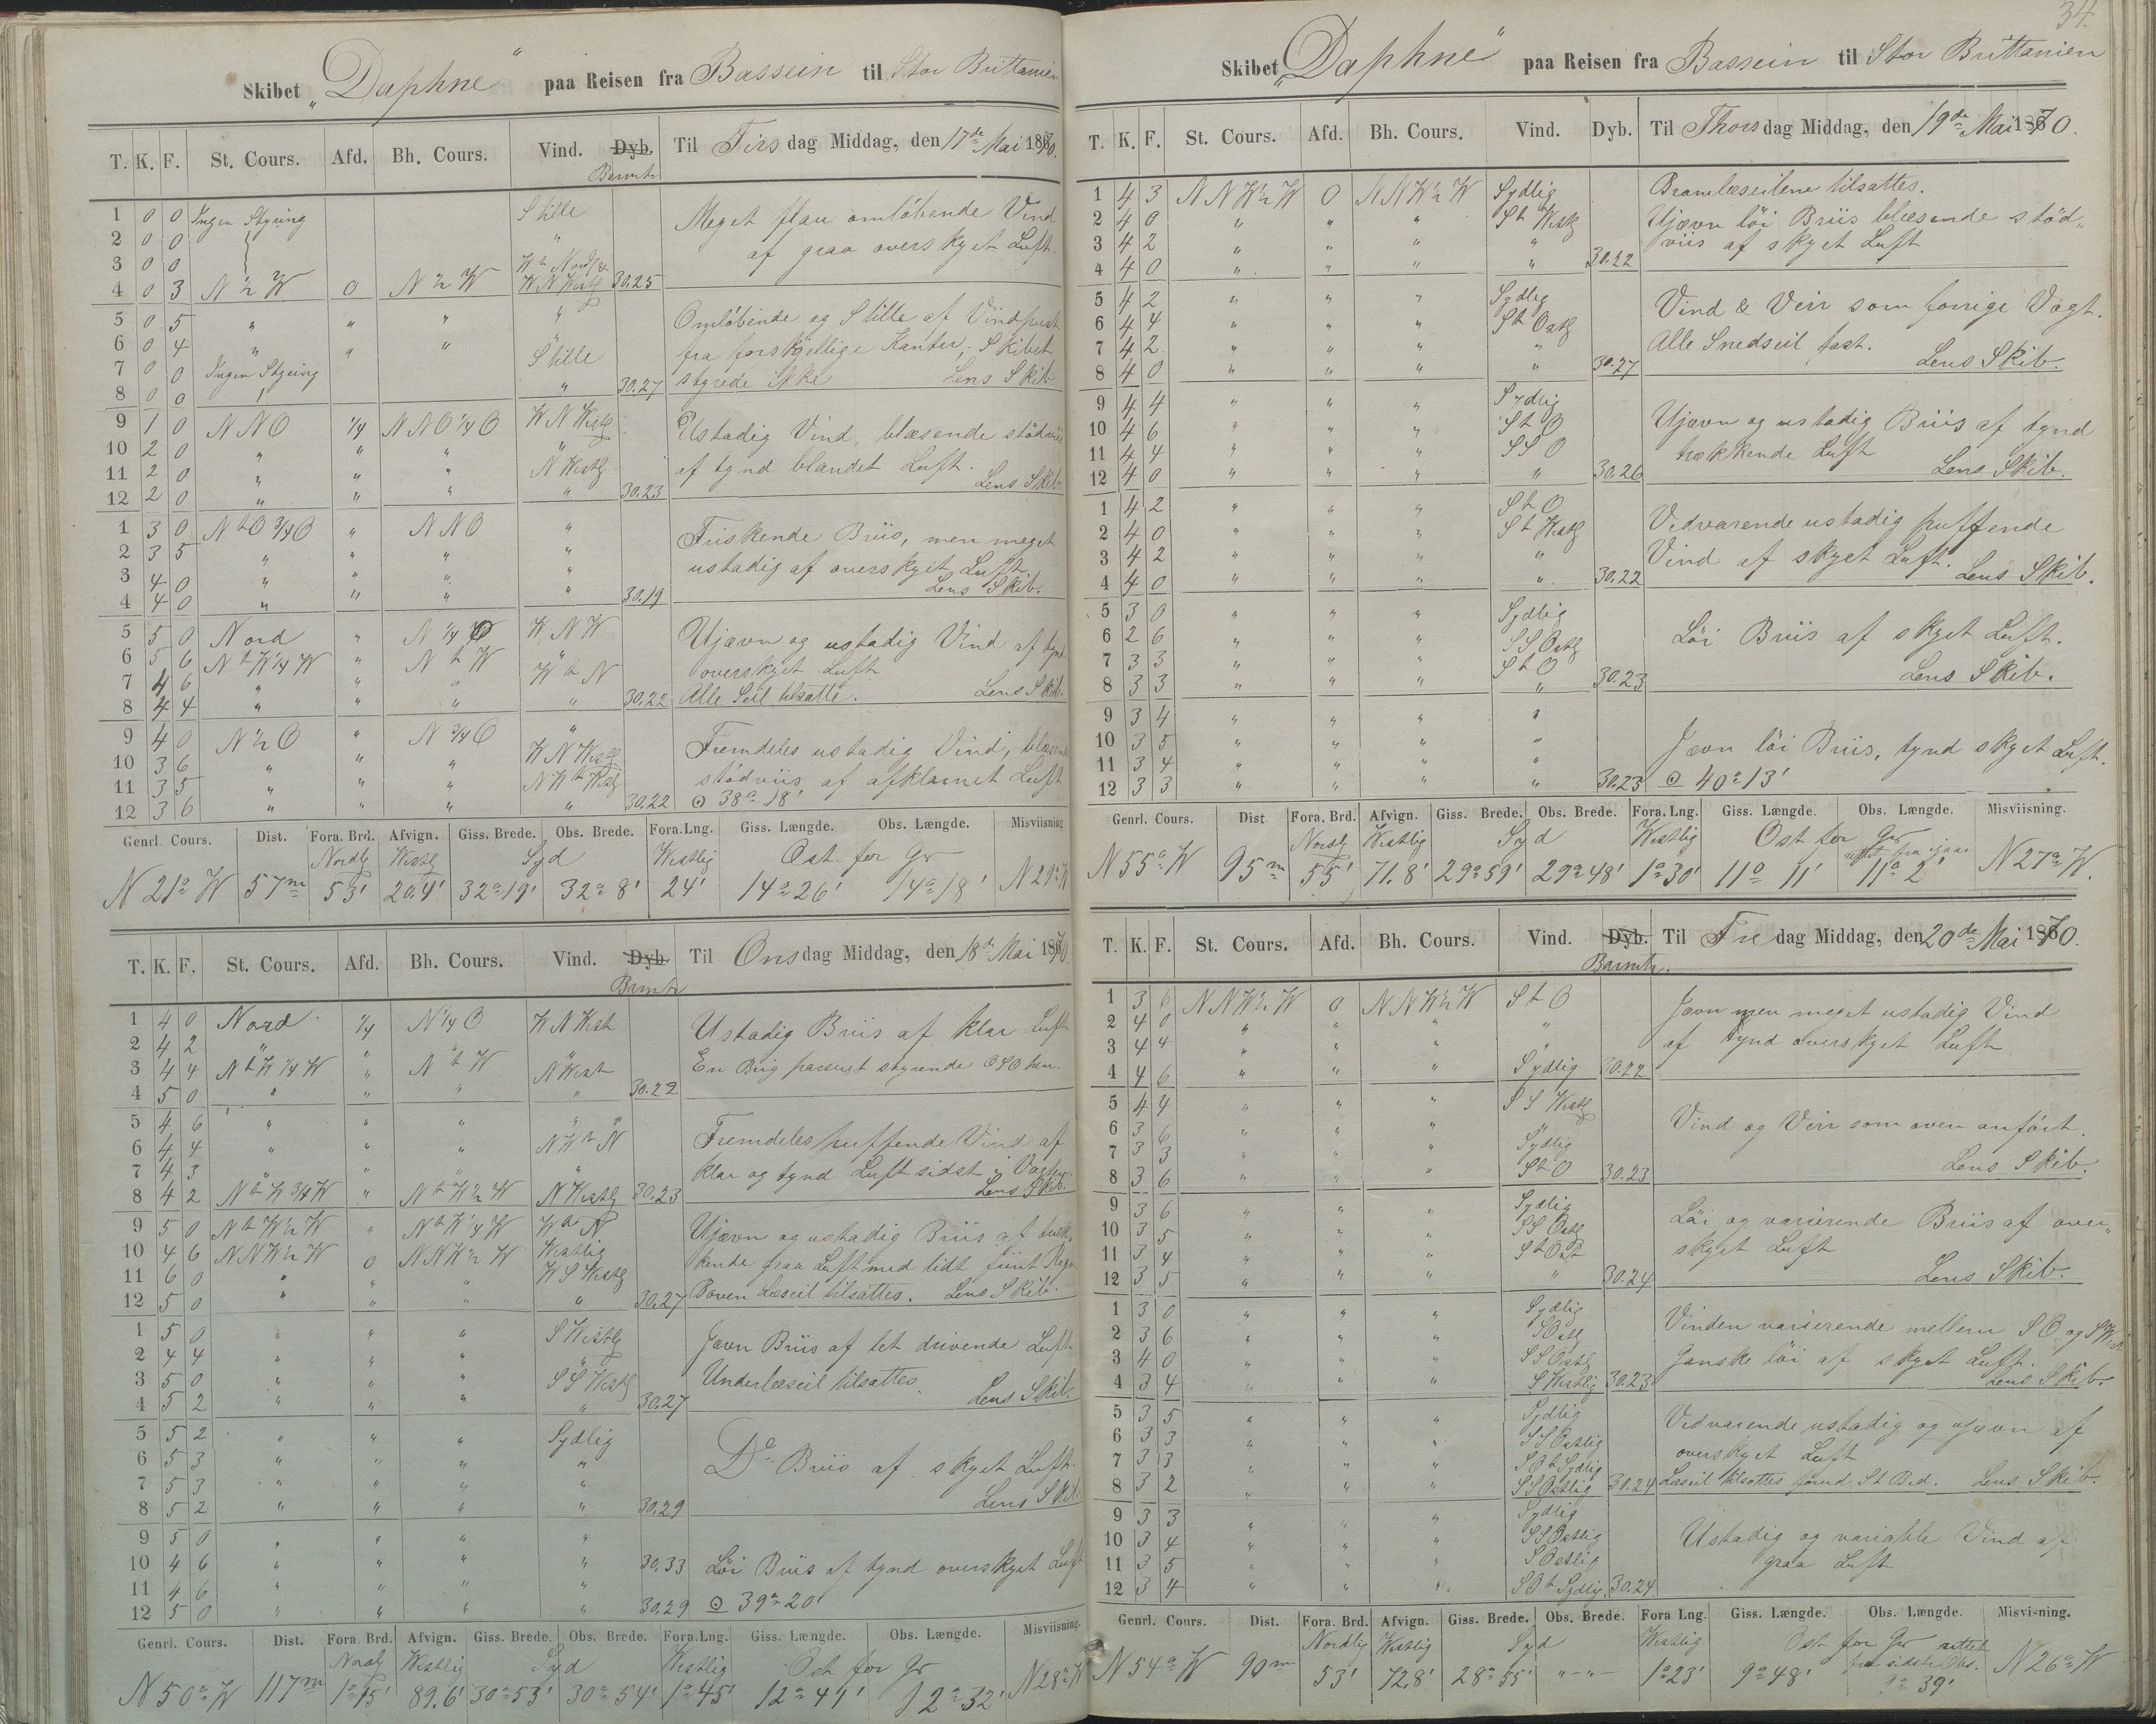 34.
Skibet „Daphne" paa Reisen fra Bassein til Stor Brittanien
T. K. F. St. Cours. Afd. Bh. Cours. Vind. Dyb. Til Tirsdag Middag, den 17de Mai 1870.
Barmtr
1 0 0 Ingen Styring Stille
2 0 0 "
3 0 0 W t Nordlg
4 0 3 N ½ W 0 N ½ W W N Westlg 30.25
Meget flau omløbende Vind
af graa overskyet Luft.
5 0 5 " " " "
6 0 4 " " " "
7 0 0 Ingen Styring Stille
8 0 0 " 30.27
Omløbende og Stille af Vindpust
fra forskjellige Kanter, Skibet
styrede ikke Lens Skib
9 1 0 N N O ¼ N N O ¼ O W N Westlg
10 2 0 " " " "
11 2 0 " " " N Westlg
12 2 0 " " " " 30.23
Ustadig Vind, blæsende stødviis
af tynd blandet Luft.
Lens Skib
1 3 0 N t O ¾ O " N N O "
2 3 5 " " " "
3 4 0 " " " "
4 4 0 " " " " 30.19
Friskende Briis, men meget
ustadig af overskyet Luft.
Lens Skib.
5 5 0 Nord " N ¼ O W N W
6 5 6 N t W ¼ W " N t W "
7 4 6 " " " W t N
8 4 4 " " " " 30.22
Ujævn og ustadig Vind af tynd
overskyet Luft
Alle Seil tilsatte. Lens Skib.
9 4 0 N ½ O " N ¾ O "
10 3 6 " " " W N Westlg
11 3 5 " " " N W t Westlg
12 3 6 " " " " 30.22
Fremdeles ustadig Vind, blæsende
stødviis af afklarnet Luft
⊙ 38° 18'
Genrl. Cours. Dist. Fora. Brd. Afvign. Giss. Brede. Obs. Brede. Fora. Lng. Giss. Længde. Obs. Længde. Misviisning
Nordlg Westlg Syd Westlig Ost for Gr
N 21° W 57m 53' 20.4' 32° 19' 32° 8' 24' 14° 26' 14° 18' N 29° W
T. K. F. St. Cours. Afd. Bh. Cours. Vind. Dyb. Til Onsdag Middag, den 18de Mai 1870
Barmtr
1 4 0 Nord ¼ N ¼ O W N West
2 4 2 " " " "
3 4 4 N t W ¼ W " N t W N West
4 5 0 " " " " 30.22
Ustadig Briis af klar Luft
En Brig passeret styrende OSO hen.
5 4 6 " " " "
6 4 4 " " " N W t N
7 4 3 " " " "
8 4 2 N t W ¾ W " N t W ½ W N Westlg 30.23
Fremdeles puffende Vind af
klar og tynd Luft sidst i Vagten
Lens Skib.
9 5 0 N t W ½ W " N t W ¼ W W t N
10 4 6 N N W ½ W 0 N N W ½ W Westlig
11 6 0 " " " W S Westlg
12 5 0 " " " " 30.27
Ujævn og ustadig Briis af træk-
kende graa Luft med lidt fiint Regn
Boven Læseil tilsattes. Lens Skib.
1 5 0 " " " S Westlg
2 4 4 " " " "
3 5 0 " " " S S Westlg
4 5 2 " " " " 30.27
Jævn Briis af let drivende Luft
Underlæseil tilsattes.
Lens Skib.
5 5 2 " " " Sydlig
6 5 3 " " " "
7 5 3 " " " "
8 5 2 " " " " 30.29
Do Briis af skyet Luft
Lens Skib
9 5 0 " " " "
10 4 6 " " " " 30.33
11 4 6 " " " "
12 5 0 " " " " 30.29
Løi Briis af tynd overskyet Luft
⊙ 39° 20'
Genrl. Cours. Dist. Fora. Brd. Afvign. Giss. Brede. Obs. Brede. Fora. Lng. Giss. Længde. Obs. Længde. Misviisning.
Nordlg Westlig Syd Westlig Ost for Gr
N 50° W 117m 1° 15' 89.6' 30° 53' 30° 54' 1° 45' 12° 41' 12° 32' N 28° W
Skibet „Daphne" paa Reisen fra Bassein til Stor Brittanien
T. K. F. St. Cours. Afd. Bh. Cours. Vind. Dyb. Til Thorsdag Middag, den 19de Mai 1870.
1 4 3 N N W ½ W 0 N N W ½ W Sydlig
2 4 0 " " " S t Westlg
3 4 2 " " " "
4 4 0 " " " " 30.22
Bramlæseilene tilsattes.
Ujævn løi Briis blæsende stød-
viis af skyet Luft
5 4 2 " " " Sydlig
6 4 4 " " " S t Ostlg
7 4 2 " " " "
8 4 0 " " " " 30.27
Vind & Veir som forrige Vagt.
Alle Snedseil fast.
Lens Skib.
9 4 4 " " " Sydlig
10 4 6 " " " S t O
11 4 4 " " " S S O
12 4 0 " " " " 30.26
Ujævn og ustadig Briis af tynd
trækkende Luft
Lens Skib.
1 4 2 " " " S t O
2 4 0 " " " S t Westlg
3 4 2 " " " "
4 4 0 " " " " 30.22
Vedvarende ustadig puffende
Vind af skyet Luft.
Lens Skib.
5 3 0 " " " Sydlig
6 2 6 " " " S S Ostlg
7 3 3 " " " S t O
8 3 3 " " " " 30.23
Løi Briis af skyet Luft.
Lens Skib.
9 3 4 " " " "
10 3 5 " " " "
11 3 4 " " " "
12 3 3 " " " " 30.23
Jævn løi Briis, tynd skyet Luft.
⊙ 40° 13'
Genrl. Cours. Dist. Fora. Brd. Afvign. Giss. Brede. Obs. Brede. Fora. Lng. Giss. Længde. Obs. Længde. Misviisning.
Nordlg Westlig Syd Westlig Ost for Gr
rettet fra igaar
N 55° W 95m 55' 71.8' 29° 59' 29° 48' 1° 30' 11° 11' 11° 2' N 27° W.
T. K. F. St. Cours. Afd. Bh. Cours. Vind. Dyb. Til Fredag Middag, den 20de Mai 1870.
Barmtr.
1 3 6 N N W ½ W 0 N N W ½ W S t O
2 4 0 " " " "
3 4 4 " " " "
4 4 6 " " " Sydlig 30.22
Jævn men meget ustadig Vind
af tynd overskyet Luft
5 4 4 " " " S S Westlg
6 3 6 " " " "
7 3 3 " " " Sydlig
8 3 6 " " " S t O 30.23
Vind og Veir som oven anført.
Lens Skib.
9 3 6 " " " Sydlig
10 3 5 " " " S S Ostlg
11 3 4 " " " S t Ost
12 3 5 " " " " 30.24
Løi og varierende Briis af over-
skyet Luft
Lens Skib.
1 3 0 " " " Sydlig
2 3 6 " " " S Ostlg
3 4 0 " " " S S Ostlg
4 3 4 " " " S Westlig 30.23
Vinden varierende mellem S O og S West
Ganske løi af skyet Luft.
Lens Skib.
5 3 5 " " " Sydlig
6 3 3 " " " S S Ostlig
7 3 3 " " " S O t Sydlig
8 3 2 " " " S S Ostlig 30.24
Vedvarende ustadig og ujævn af
overskyet Luft
Læseil tilsattes St B.d. Lens Skib.
9 3 3 " " " Sydlig
10 3 4 " " " S S Ostlig
11 3 5 " " " S Ostlig
12 3 4 " " " S O t Sydlig. 30.24
Ustadig og variable Vind af
graa Luft
Genrl. Cours. Dist. Fora. Brd. Afvign. Giss. Brede. Obs. Brede. Fora Lng. Giss. Længde. Obs. Længde. Misvisning.
Nordlig Westlig Syd Westlig Ost for Gr rettet
fra sidste Obs.
N 54° W 90m 53' 72,8' 28° 55' "—"— 1° 23' 9° 48' 9° 39' N 26° W